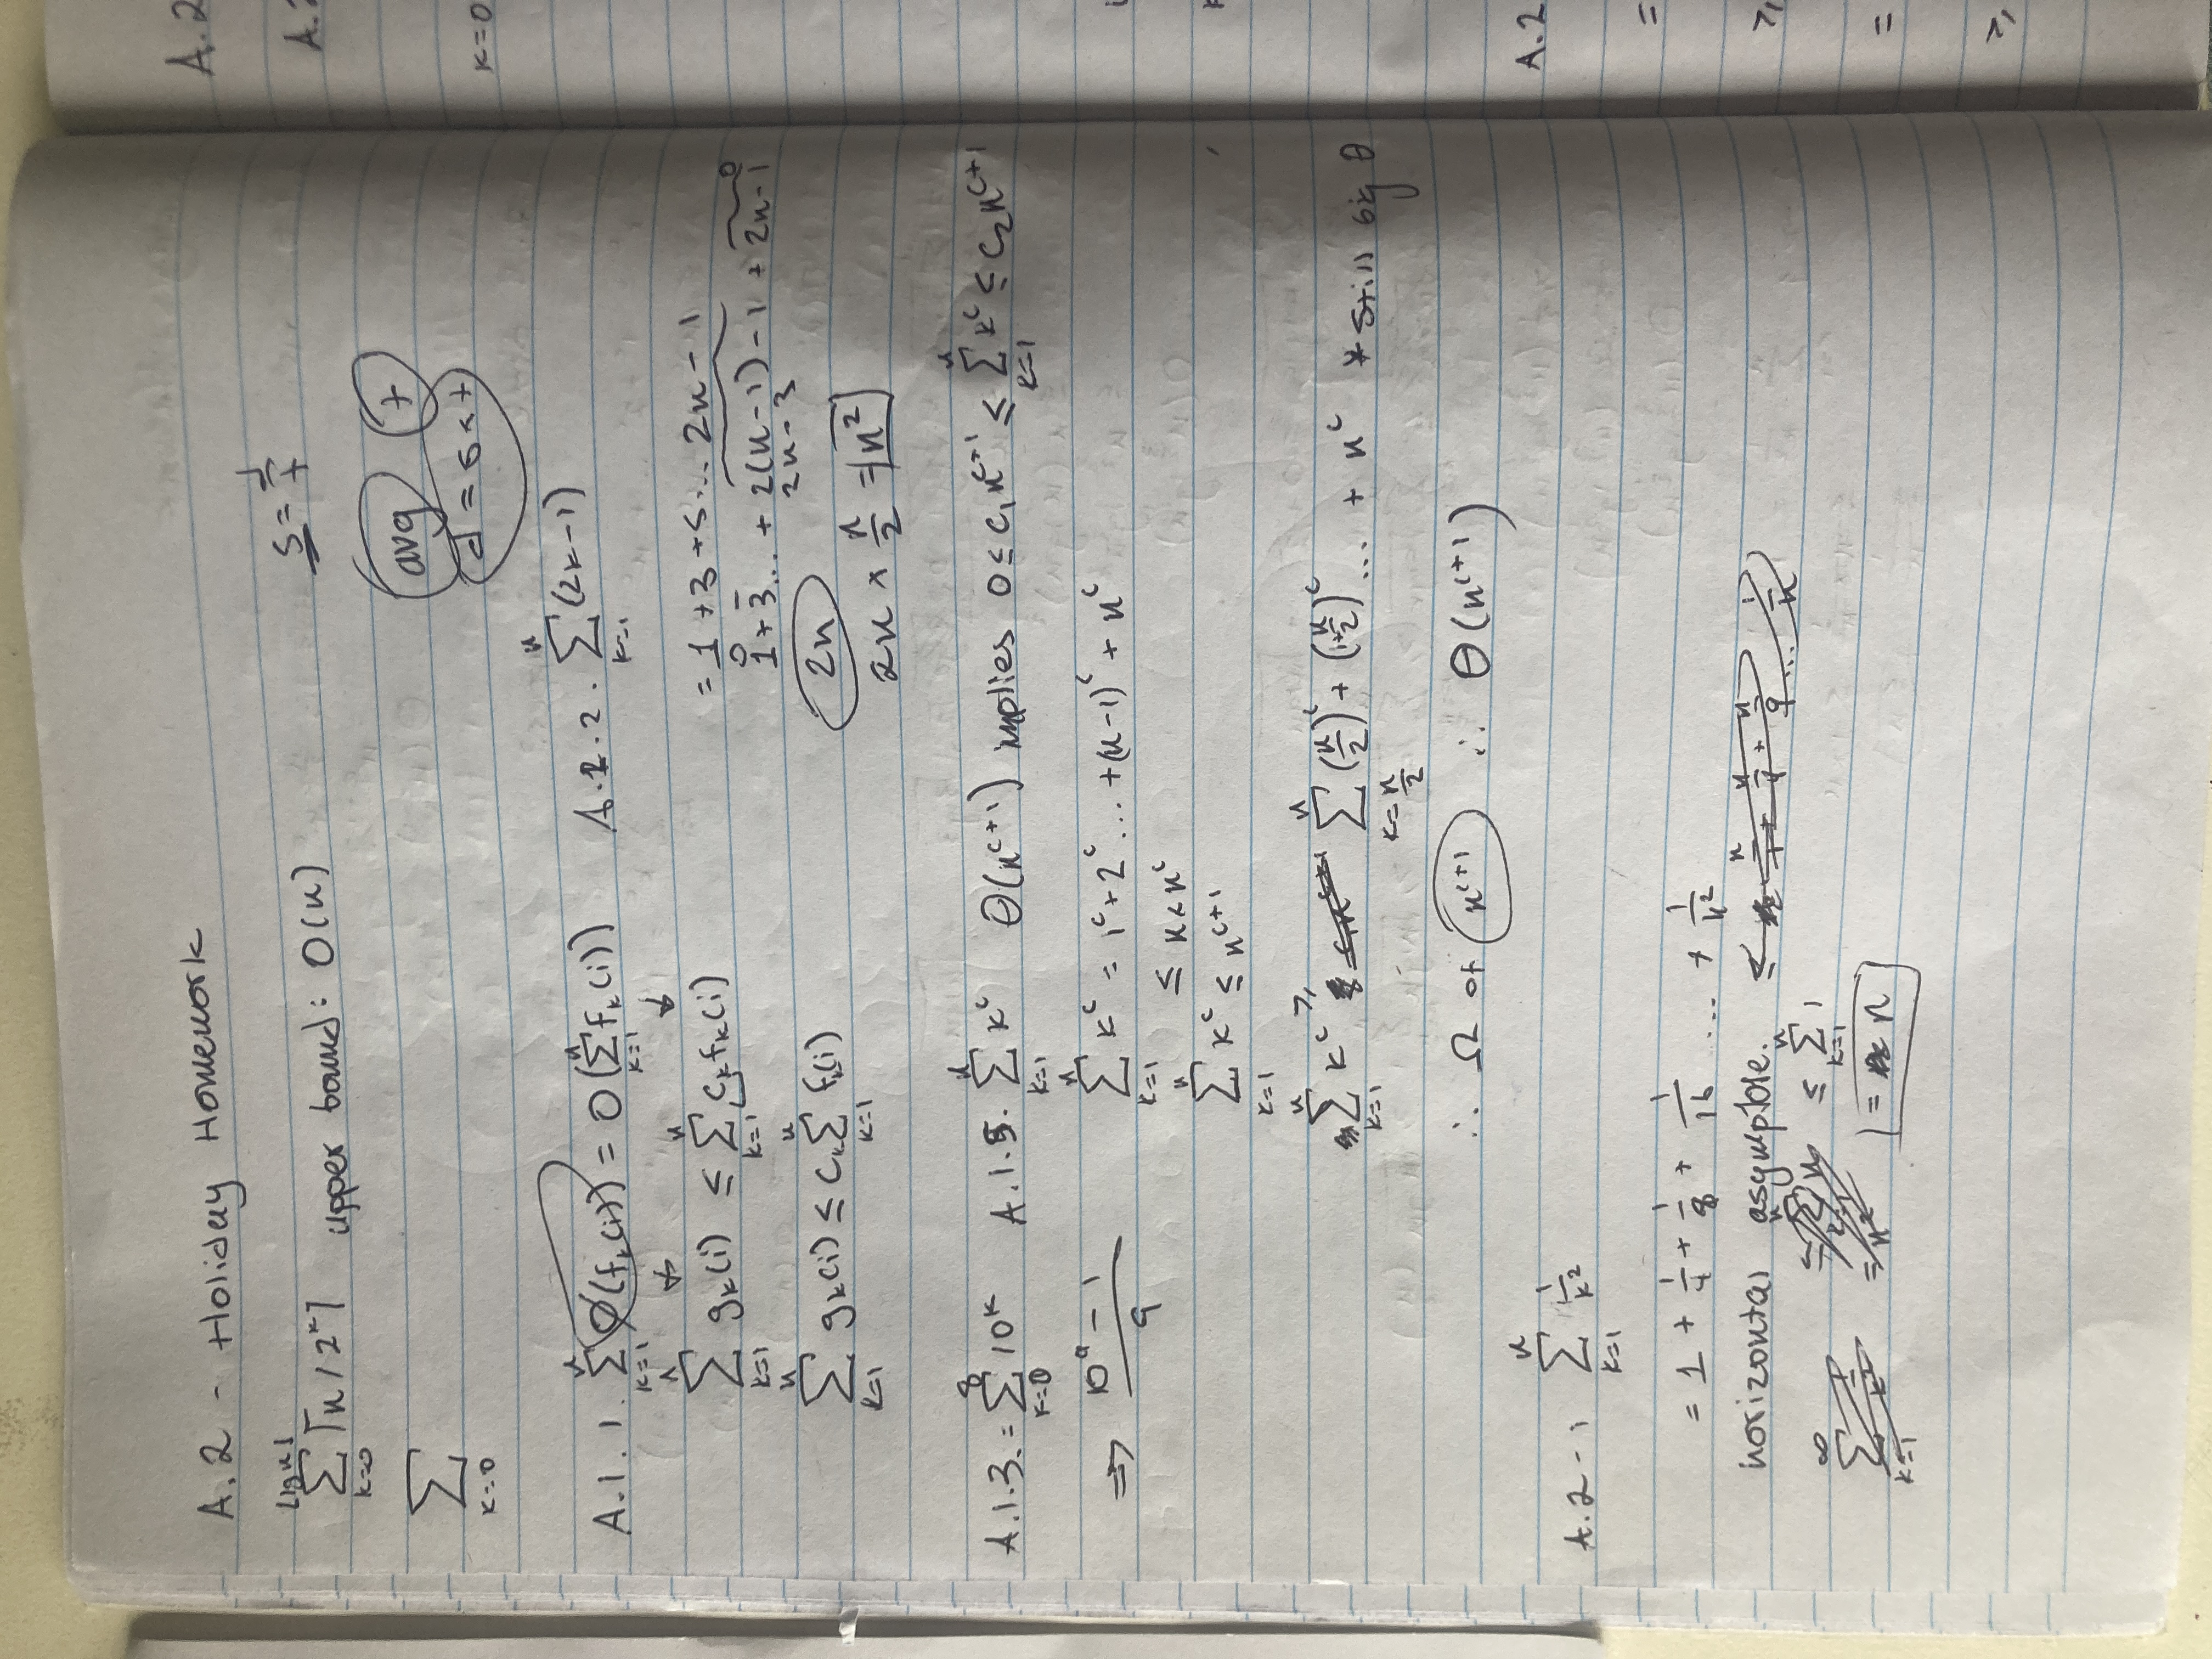 A.2 - Holiday Homework
⌊lg n⌋
∑ ⌈n/2^k⌉ upper bound: O(n)
k=0
s = d/t
avg t
d = s × t
∑
k=0
A.1.1. ∑_{k=1}^{n} O(f_k(i)) = O(∑_{k=1}^{n} f_k(i))
∑_{k=1}^{n} g_k(i) ≤ ∑_{k=1}^{n} c_k f_k(i)
∑_{k=1}^{n} g_k(i) ≤ c_k ∑_{k=1}^{n} f_k(i)
A.1.2. ∑_{k=1}^{n} (2k-1)
= 1 + 3 + 5 ... 2n - 1
1 + 3 ... + 2(n-1) - 1 + 2n - 1
2n - 3
2n
2n × n/2 = n^2
A.1.3. = ∑_{k=0}^{8} 10^k
⇒ (10^9 - 1)/9
A.1.5. ∑_{k=1}^{n} k^c Θ(n^{c+1}) implies 0 ≤ c_1 n^{c+1} ≤ ∑_{k=1}^{n} k^c ≤ c_2 n^{c+1}
∑_{k=1}^{n} k^c = 1^c + 2^c ... + (n-1)^c + n^c
≤ n × n^c
∑_{k=1}^{n} k^c ≤ n^{c+1}
∑_{k=1}^{n} k^c ≥ ∑_{k=n/2}^{n} (n/2)^c + (1+n/2)^c ... + n^c * still big Θ
∴ Ω of n^{c+1} ∴ Θ(n^{c+1})
A.2-1 ∑_{k=1}^{n} 1/k^2
= 1 + 1/4 + 1/8 + 1/16 ... + 1/n^2
horizontal asymptote.
≤ ∑_{k=1}^{n} 1
= n
A.2
k=0
A.2
=
≥
=
≥